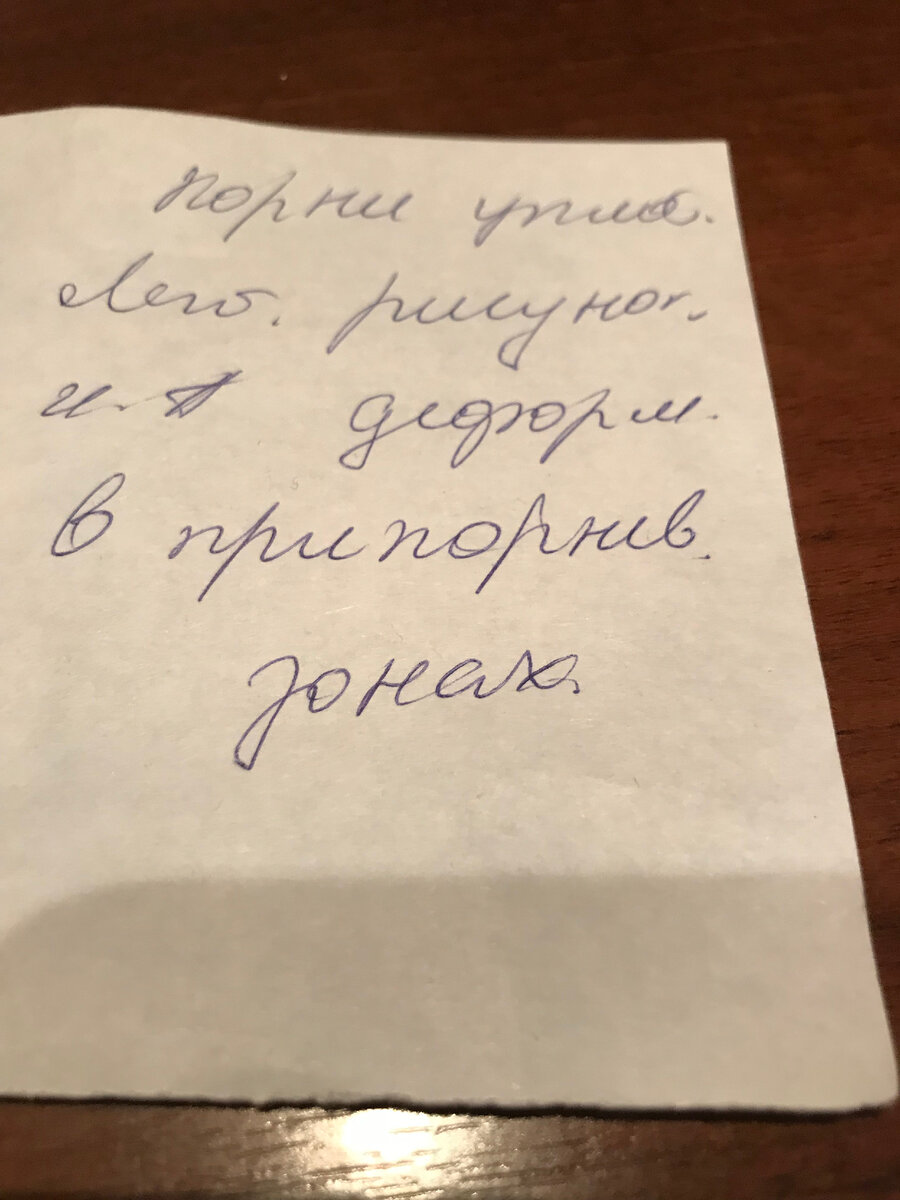 Корни уплот.
Лег. рисунок.
и деформ.
в прикорнев.
зонах.